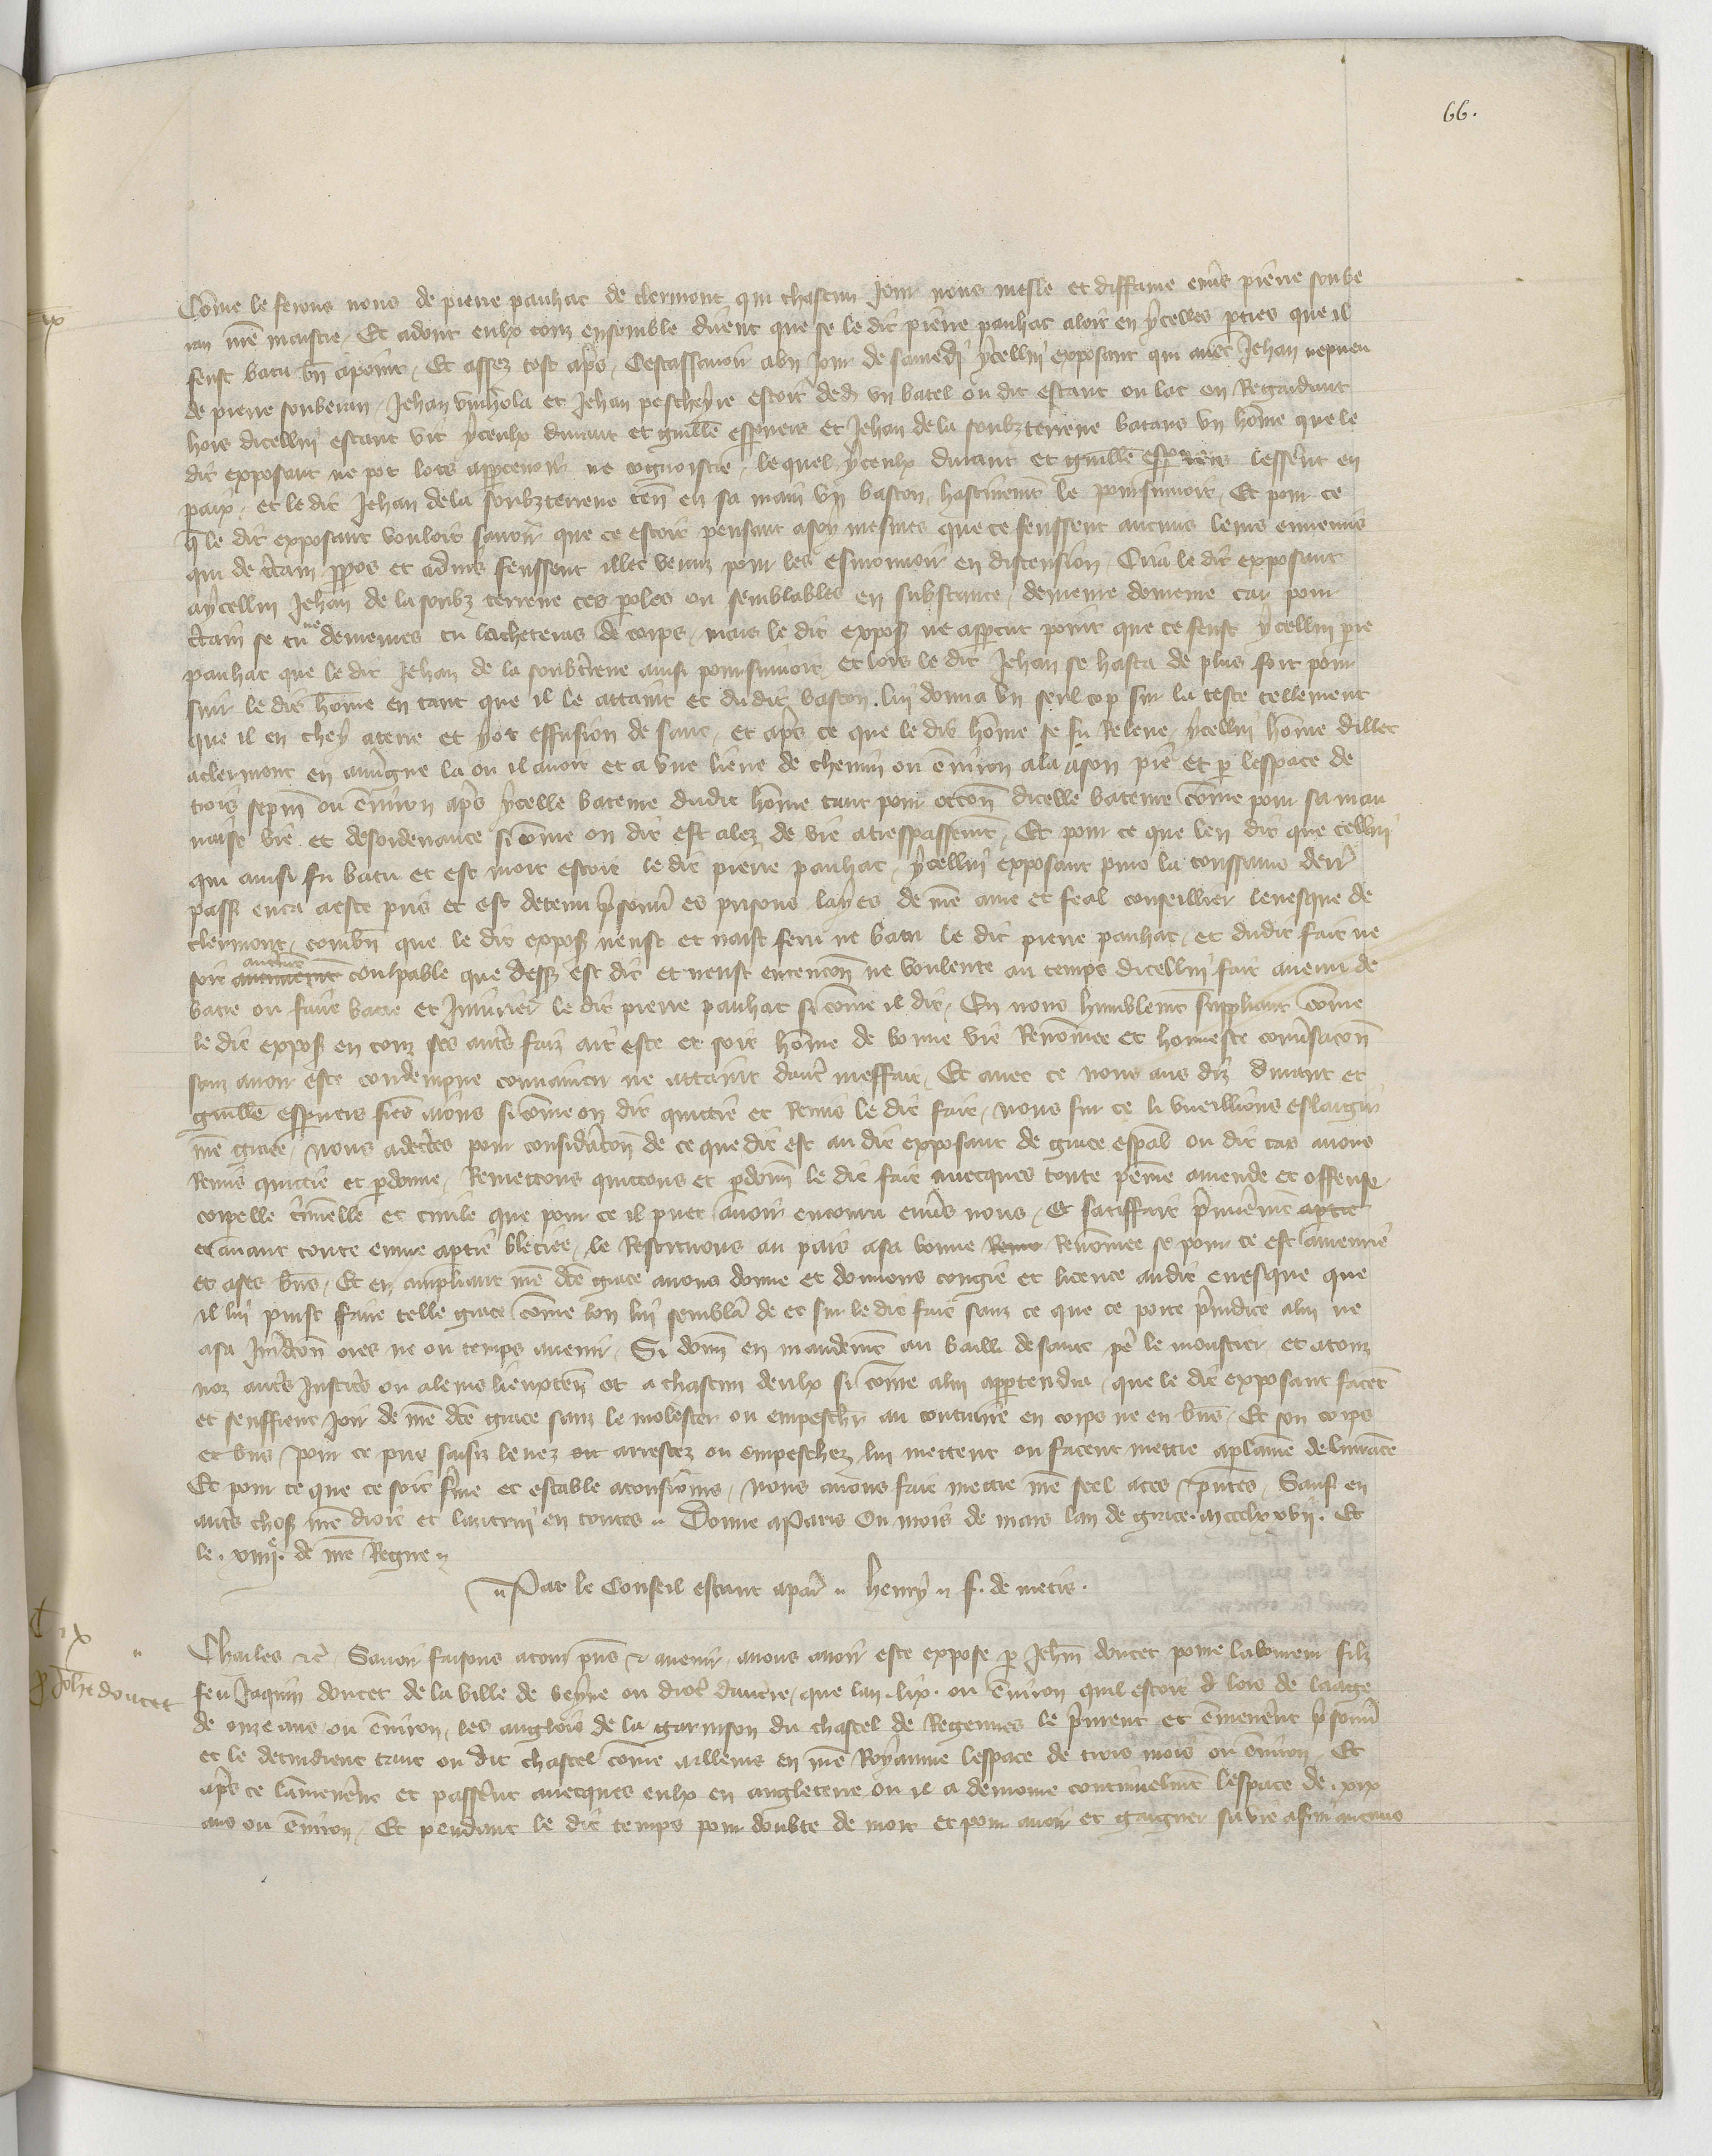 66.
Come le ferons nous de pierre panhac de clermont qui chascun Jour nous mesle et diffame envs pierre soube
ran nre maistre. Et adont eulx touz ensemble dirent que se le dit pierre panhac aloit en ycelles pties que il
feust batu bn apoint, Et assez tost apres, Cestassavoir abn Jour de samedi ycellui exposant qui avec Jehan nepueu
de pierre souberan, Jehan et Jehan pescheyre estoit dedens un batel ou dit estant ou lac en Regardant
hors dicellui estant vit yceulx durant et guille espineis et Jehan de la soubzterrene batans un home que le
dit exposant ne pot lors appcevoir ne cognoistre, lequel yceulx durant et guille lesserent en
paix, et le dit Jehan de la soubzterrene ten en sa main un baston, hastivemt le poursuivoit, Et pour ce
q le dit exposant vouloit savoir que ce estoit pensant a soy mesmes que ce feussent aucuns leurs ennemis
qui de ctain ppos et advis feussent illec venuz pour les esmouvoir en discension, Cria le dit exposant
a ycellui Jehan de la soubz terrene ces poles ou semblables en substance, demeure demeure car pour
ctain se tu ne demeures tu lacheteras de corps, mais le dit expos ne appcut point que ce feust ycellui pre
panhac que le dit Jehan de la soubterrene ainsi poursuivoit, et lors le dit Jehan se hasta de plus fort pour
suir le dit home en tant que il le attaint et dudit baston lui donna un seul cop sur la teste tellement
que il en chey aterre et yot effusion de sanc, et apres ce que le dit home se fu Releve, ycellui home dillec
a clermont en auvgne la ou il avoit et a une lieue de chemin ou environ ala a son pie et p lespace de
trois sepm ou environ apres ycelle bateure dudit home tant pour occon dicelle bateure come pour sa mau
vaise vie et desordenance si come on dit est alez de vie a trespassemt, Et pour ce que len dit que cellui
qui ainsi fu batu et est mort estoit le dit pierre panhac, ycellui exposant puis la toussains derr
pass enca a este pris et est detenu prisonn es prisons layes de nre ame et feal conseillier levesque de
clermont, combn que le dit expos neust et nait feru ne batu le dit pierre panhac, et dudit fait ne
soit aucunemt coulpable que dess est dit et neust entencon ne voulente au temps dicellui fait avenu de
batre ou faire batre et Iniurier le dit pierre panhac si come il dit, En nous humblemt suppliant come
le dit expos en touz ses autres faiz ait este et soit home de bonne vie Renommee et honneste conversacon
sanz avoir este condempne convaincu ne attaint dautre meffait, Et avec ce nous aus diz durant et
guille espineis aions si come on dit quittie et Remis le dit fait, nous sur ce li vueillions eslargir
nre grace, nous adecertes pour consideracon de ce que dit est au dit exposant de grace espal ou dit cas avons
Remis quittie et pdonne, Remettons quittons et pdonn le dit fait avecques toute peinne amende et offense
corpelle criminelle et civile que pour ce il puet avoir encouru envers nous, Et satiffait premieremt a ptie
et avant toute euvre a ptie bleciee, le Restituons au pais a sa bonne Renomee se pour ce est amenrie
et a ses bns, Et en ampliant nre dce grace avons donne et donnons congie et licence audit evesque que
il lui puist faire telle grace come bon lui semblera de et sur le dit fait sanz ce que ce porte preiudice a lui ne
a sa Juridcon ores ne ou temps avenir, Si donn en mandemt au bailli de saint pere le moustier et a touz
noz autres Justices ou a leurs lieuxten et a chascun deulx si come a lui apptendra, que le dit exposant facent
et seuffrent Joir de nre dce grace sanz le molester ou empescher au contraire en corps ne en bns, Et son corps
et bns pour ce pris saisiz levez ou arrestez ou empeschez lui mettent ou facent mettre a plaine delivrance
Et pour ce que ce soit ferme et estable a tousiours, nous avons fait mettre nre seel a ces pntes, Sauf en
autres choses nre droit et lautrui en toutes. Donne a Paris Ou mois de mars lan de grace mccclxxvii. Et
le xiiiie. de nre Regne
Par le Conseil estant a par henry f. de metis.
C ix
p Johe doucet
Charles etc Savoir faisons a touz pns et avenir, a nous avoir este expose p Jehan doucet povre laboureur filz
feu Jaquin doucet de la ville de beyne ou dioc daucerre, que lan lix ou environ quil estoit dlors de laage
de onze ans ou environ, les anglois de la garnison du chastel de Regennes le prinrent et emmenerent prisonn
et le detindrent tant ou dit chastel come ailleurs en nre Royaume lespace de trois mois ou environ, Et
apres ce lammenerent et passerent avecques eulx en angleterre ou il a demoure continuelmt lespace de xix
ans ou environ, Et pendant le dit temps pour doubte de mort et pour avoir et gaigner sa vie a servi aucuns